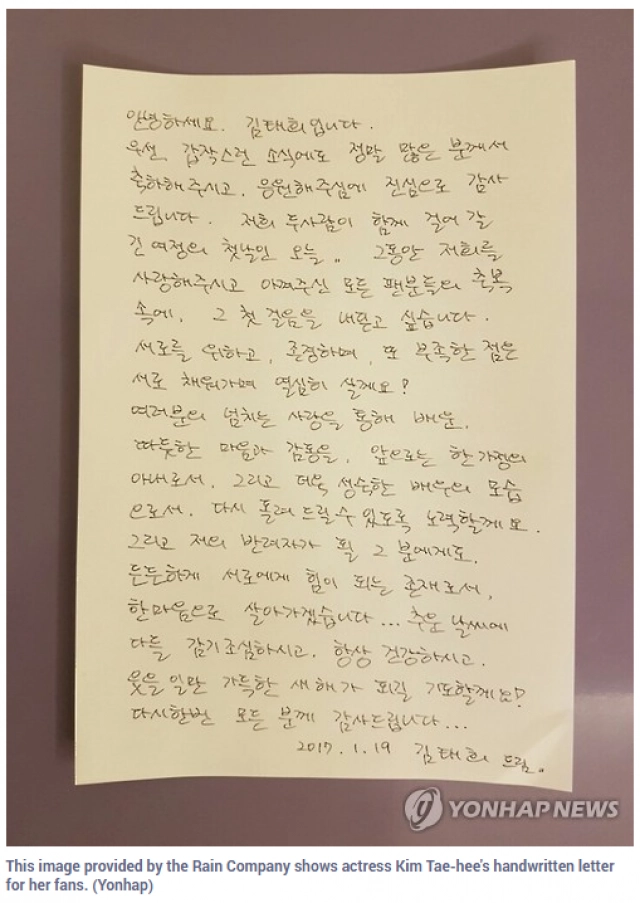 안녕하세요. 김태희입니다.
우선, 갑작스런 소식에도 정말 많은 분께서
축하해주시고, 응원해주심에 진심으로 감사
드립니다. 저희 두사람이 함께 걸어 갈
긴 여정의 첫날인 오늘.. 그동안 저희를
사랑해주시고 아껴주신 모든 팬분들의 축복
속에, 그 첫 걸음을 내딛고 싶습니다.
서로를 위하고, 존경하며, 또 부족한 점은
서로 채워가며 열심히 살게요!
여러분의 넘치는 사랑을 통해 배운,
따뜻한 마음과 감동을, 앞으로는 한 가정의
아내로서, 그리고 더욱 성숙한 배우의 모습
으로서, 다시 돌려 드릴 수 있도록 노력할께요.
그리고 저의 반려자가 될 그 분에게도,
든든하게 서로에게 힘이 되는 존재로서,
한마음으로 살아가겠습니다... 추운 날씨에
다들 감기조심하시고, 항상 건강하시고,
웃을 일만 가득한 새해가 되길 기도할께요!
다시한번 모든 분께 감사드립니다...
2017. 1. 19 김태희 드림..
YONHAP NEWS
This image provided by the Rain Company shows actress Kim Tae-hee's handwritten letter
for her fans. (Yonhap)